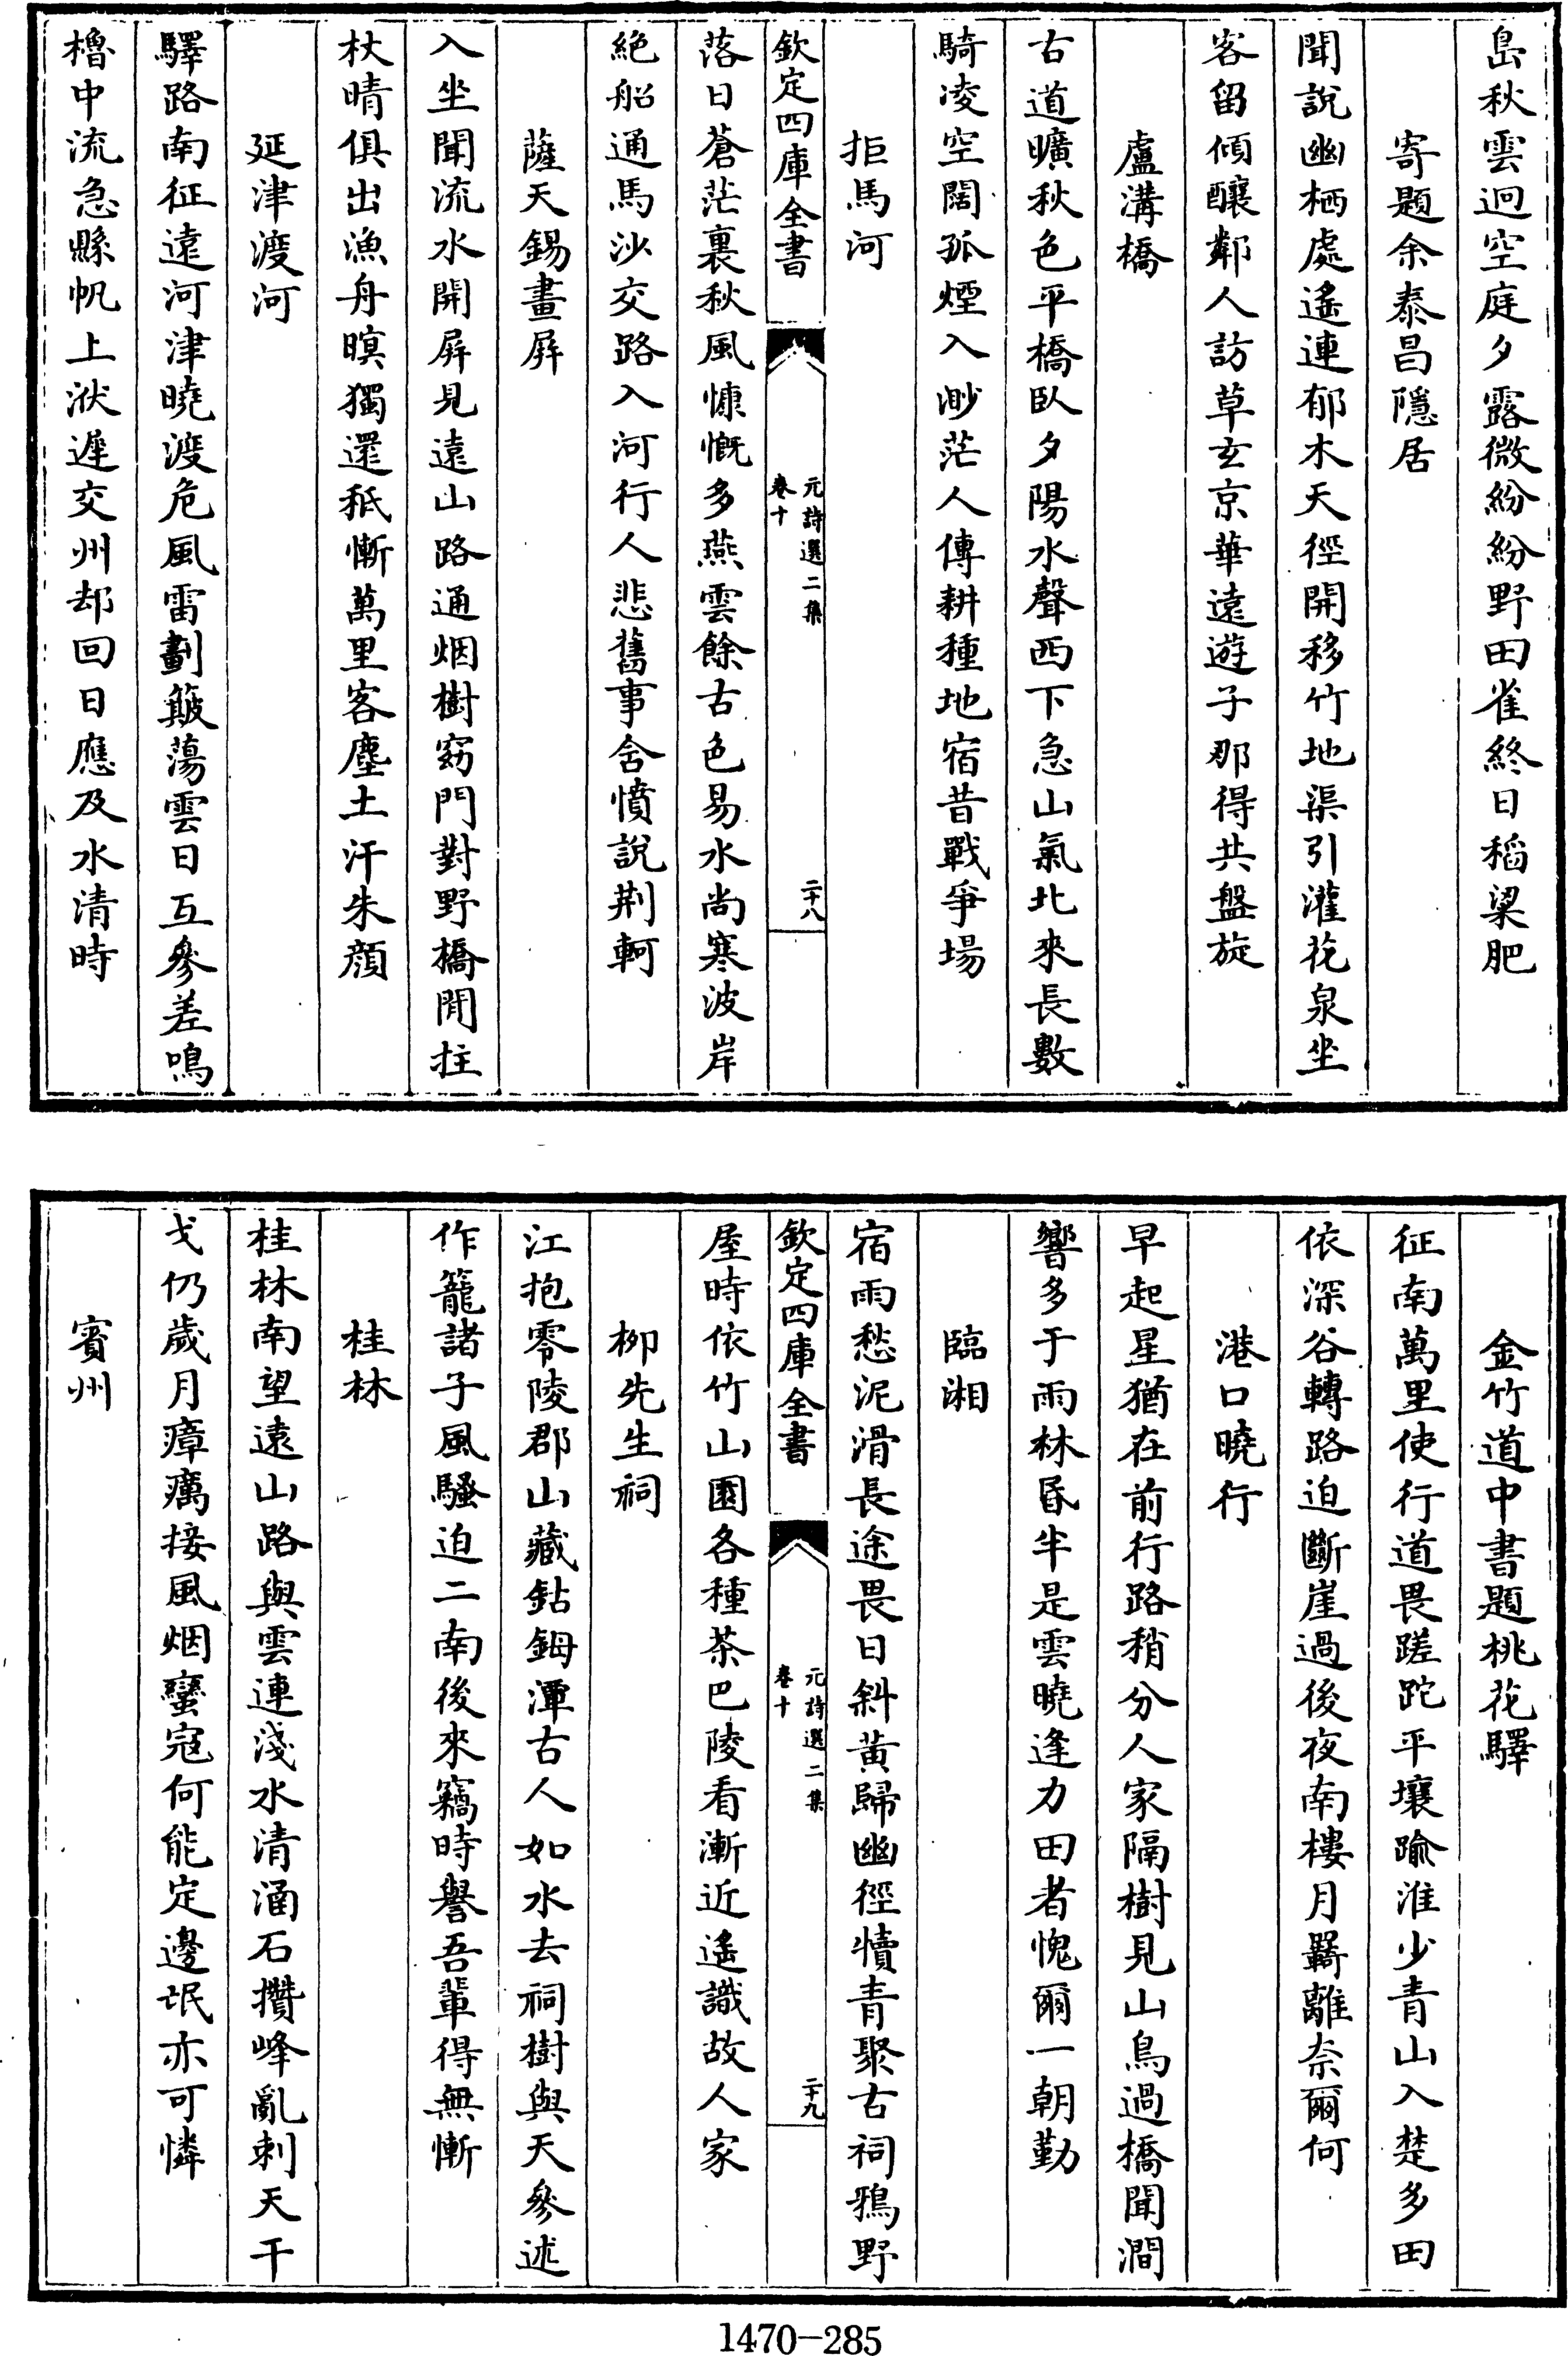 島秋雲迥空庭夕露微紛紛野田雀終日稻粱肥
寄題余泰昌隱居
聞說幽栖處遙連郁木天徑開移竹地渠引灌花泉坐
客留傾釀鄰人訪草玄京華遠遊子那得共盤旋
盧溝橋
古道曠秋色平橋臥夕陽水聲西下急山氣北來長數
騎凌空闊孤煙入渺茫人傳耕種地宿昔戰爭場
拒馬河
欽定四庫全書
元詩選二集
卷十
二十八
落日蒼茫裏秋風慷慨多燕雲餘古色易水尚寒波岸
絕船通馬沙交路入河行人悲舊事含憤說荆軻
薩天錫畫屏
入坐聞流水開屏見遠山路通烟樹窈門對野橋閒拄
杖晴俱出漁舟暝獨還秪慚萬里客塵土汗朱顔
延津渡河
驛路南征遠河津曉渡危風雷劃簸蕩雲日互參差鳴
櫓中流急縣帆上洑遲交州却回日應及水清時
金竹道中書題桃花驛
征南萬里使行道畏蹉跎平壤踰淮少青山入楚多田
依深谷轉路迫斷崖過後夜南樓月羇離奈爾何
港口曉行
早起星猶在前行路稍分人家隔樹見山鳥過橋聞澗
響多于雨林昬半是雲曉逢力田者愧爾一朝勤
臨湘
宿雨愁泥滑長途畏日斜黃歸幽徑犢青聚古祠鴉野
欽定四庫全書
元詩選二集
卷十
二十九
屋時依竹山園各種茶巴陵看漸近遙識故人家
柳先生祠
江抱零陵郡山藏鈷鉧潭古人如水去祠樹與天參述
作籠諸子風騷迫二南後來竊時譽吾輩得無慚
桂林
桂林南望遠山路與雲連淺水清涵石攢峰亂刺天干
戈仍歲月瘴癘接風烟蠻宼何能定邊氓亦可憐
賓州
1470-285